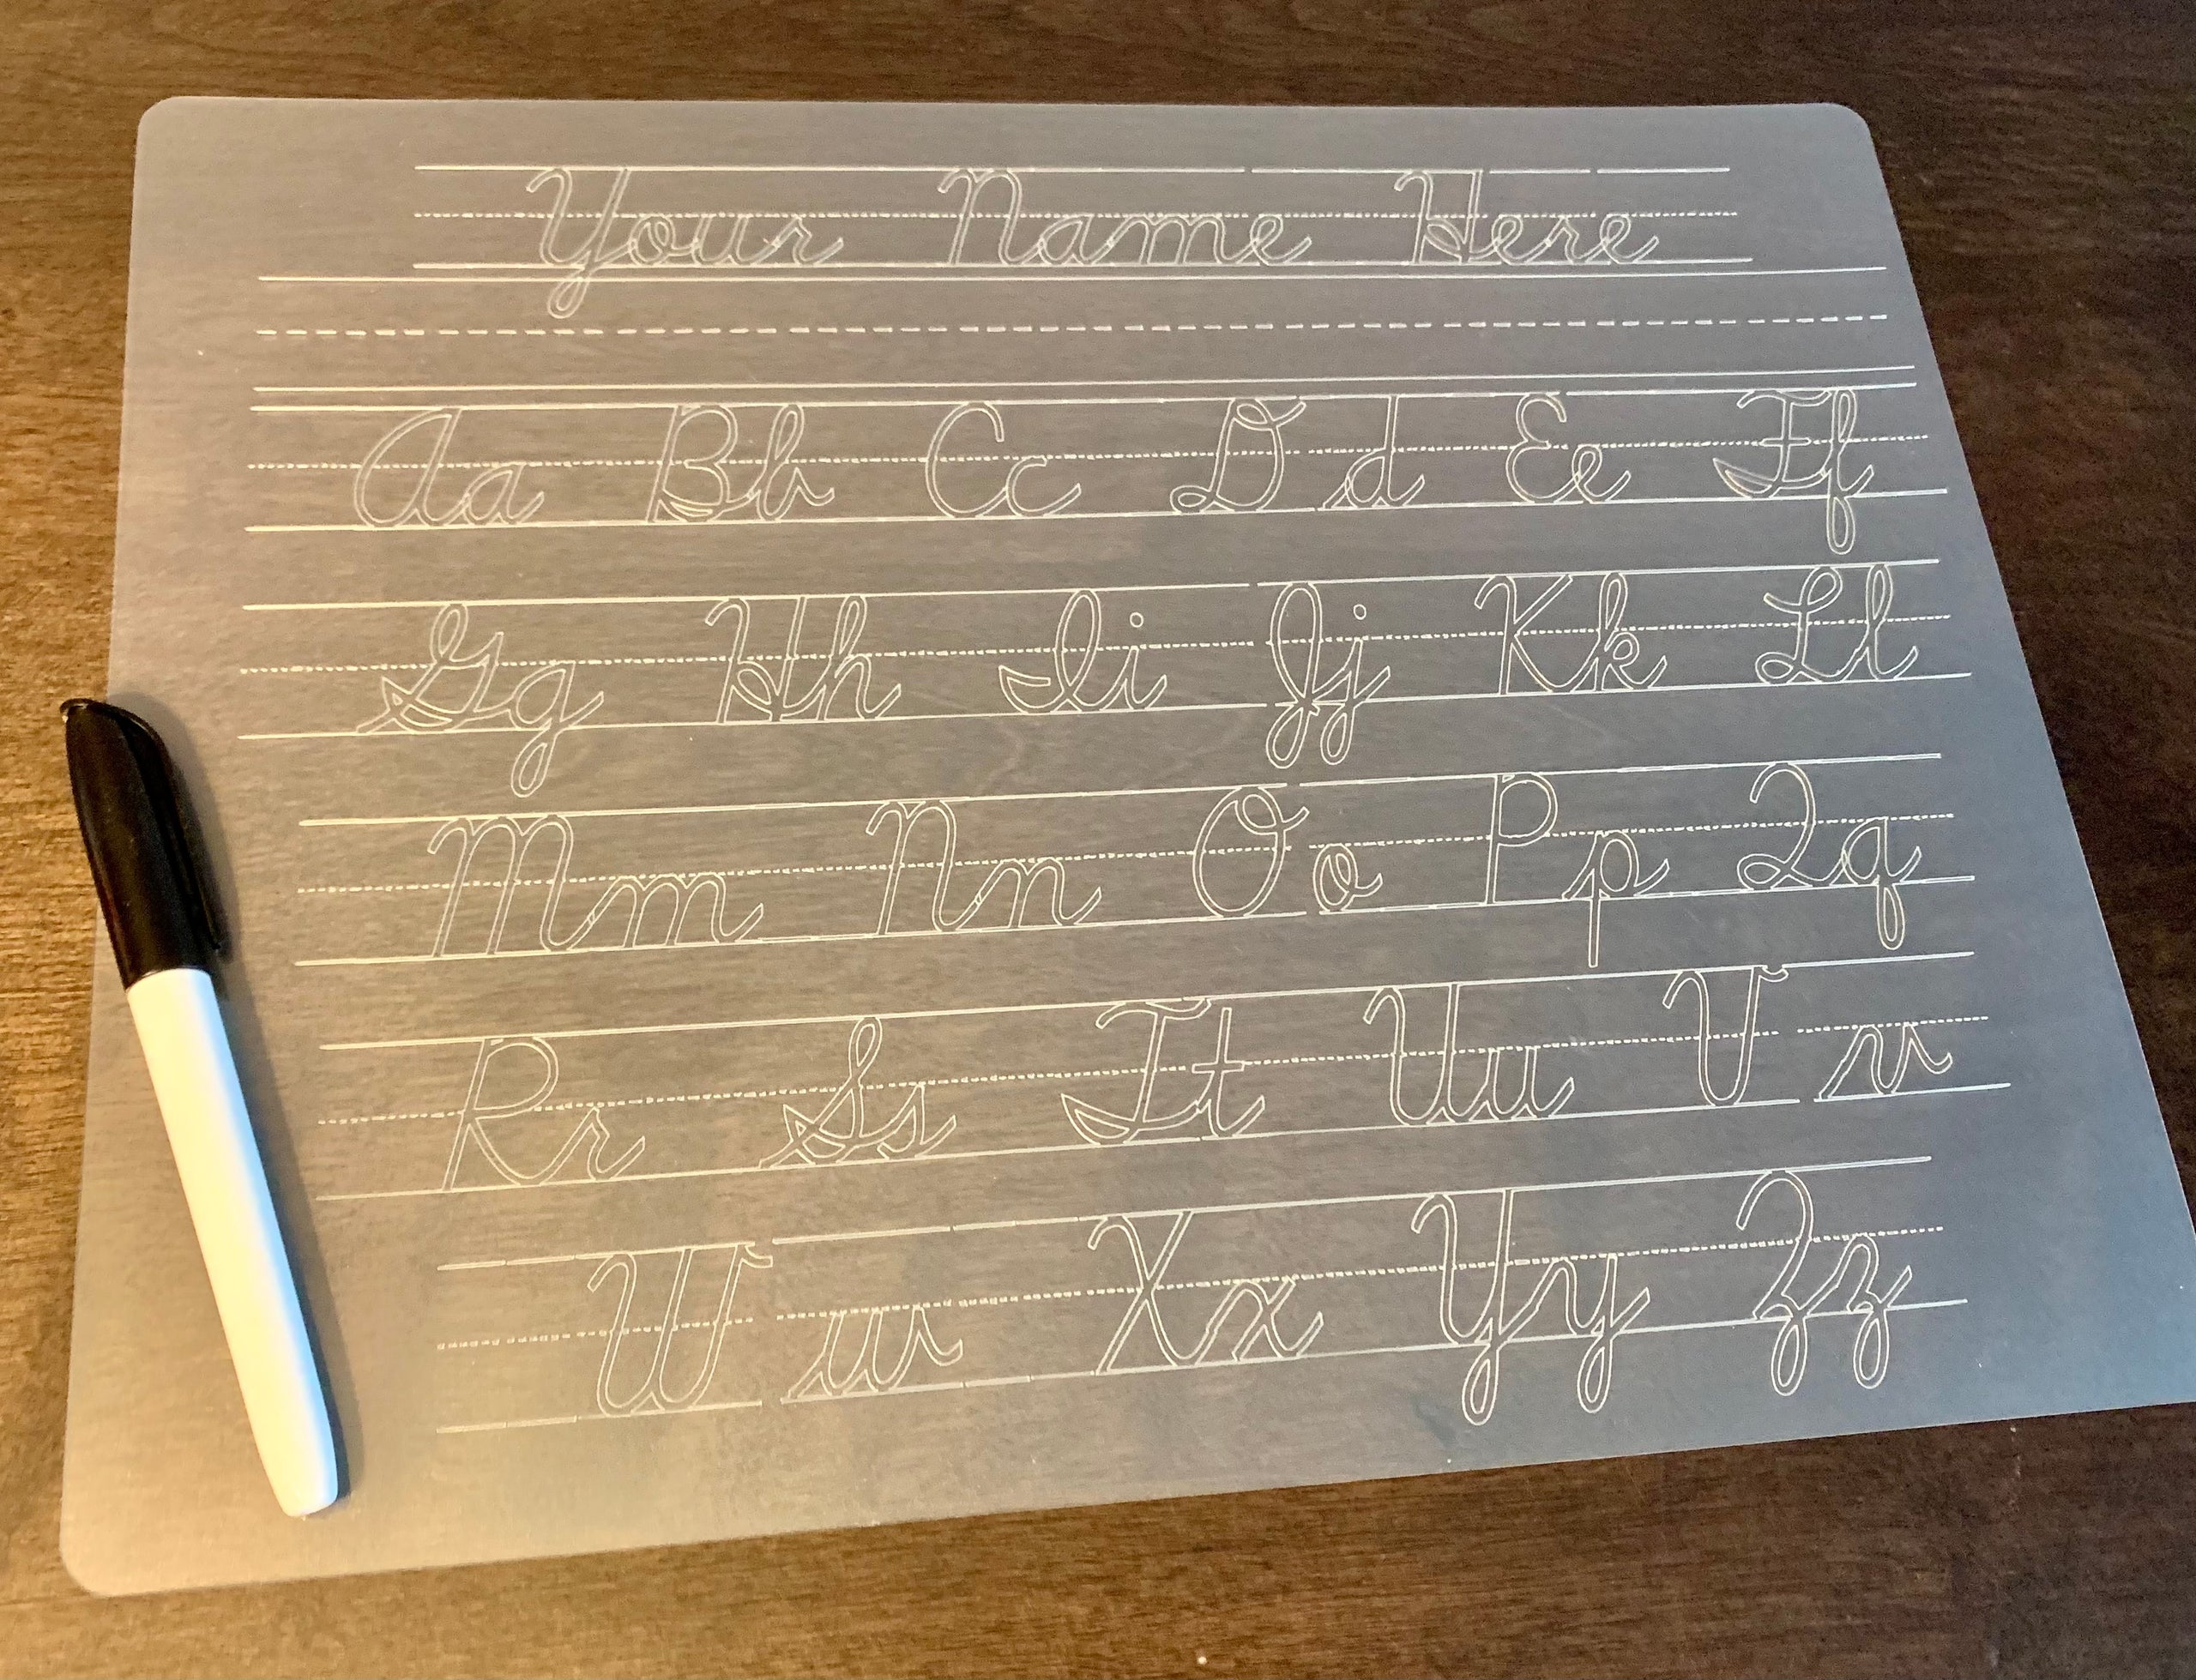 Your Name Here
Aa Bb Cc Dd Ee Ff
Gg Hh Ii Jj Kk Ll
Mm Nn Oo Pp Qq
Rr Ss Tt Uu Vv
Ww Xx Yy Zz